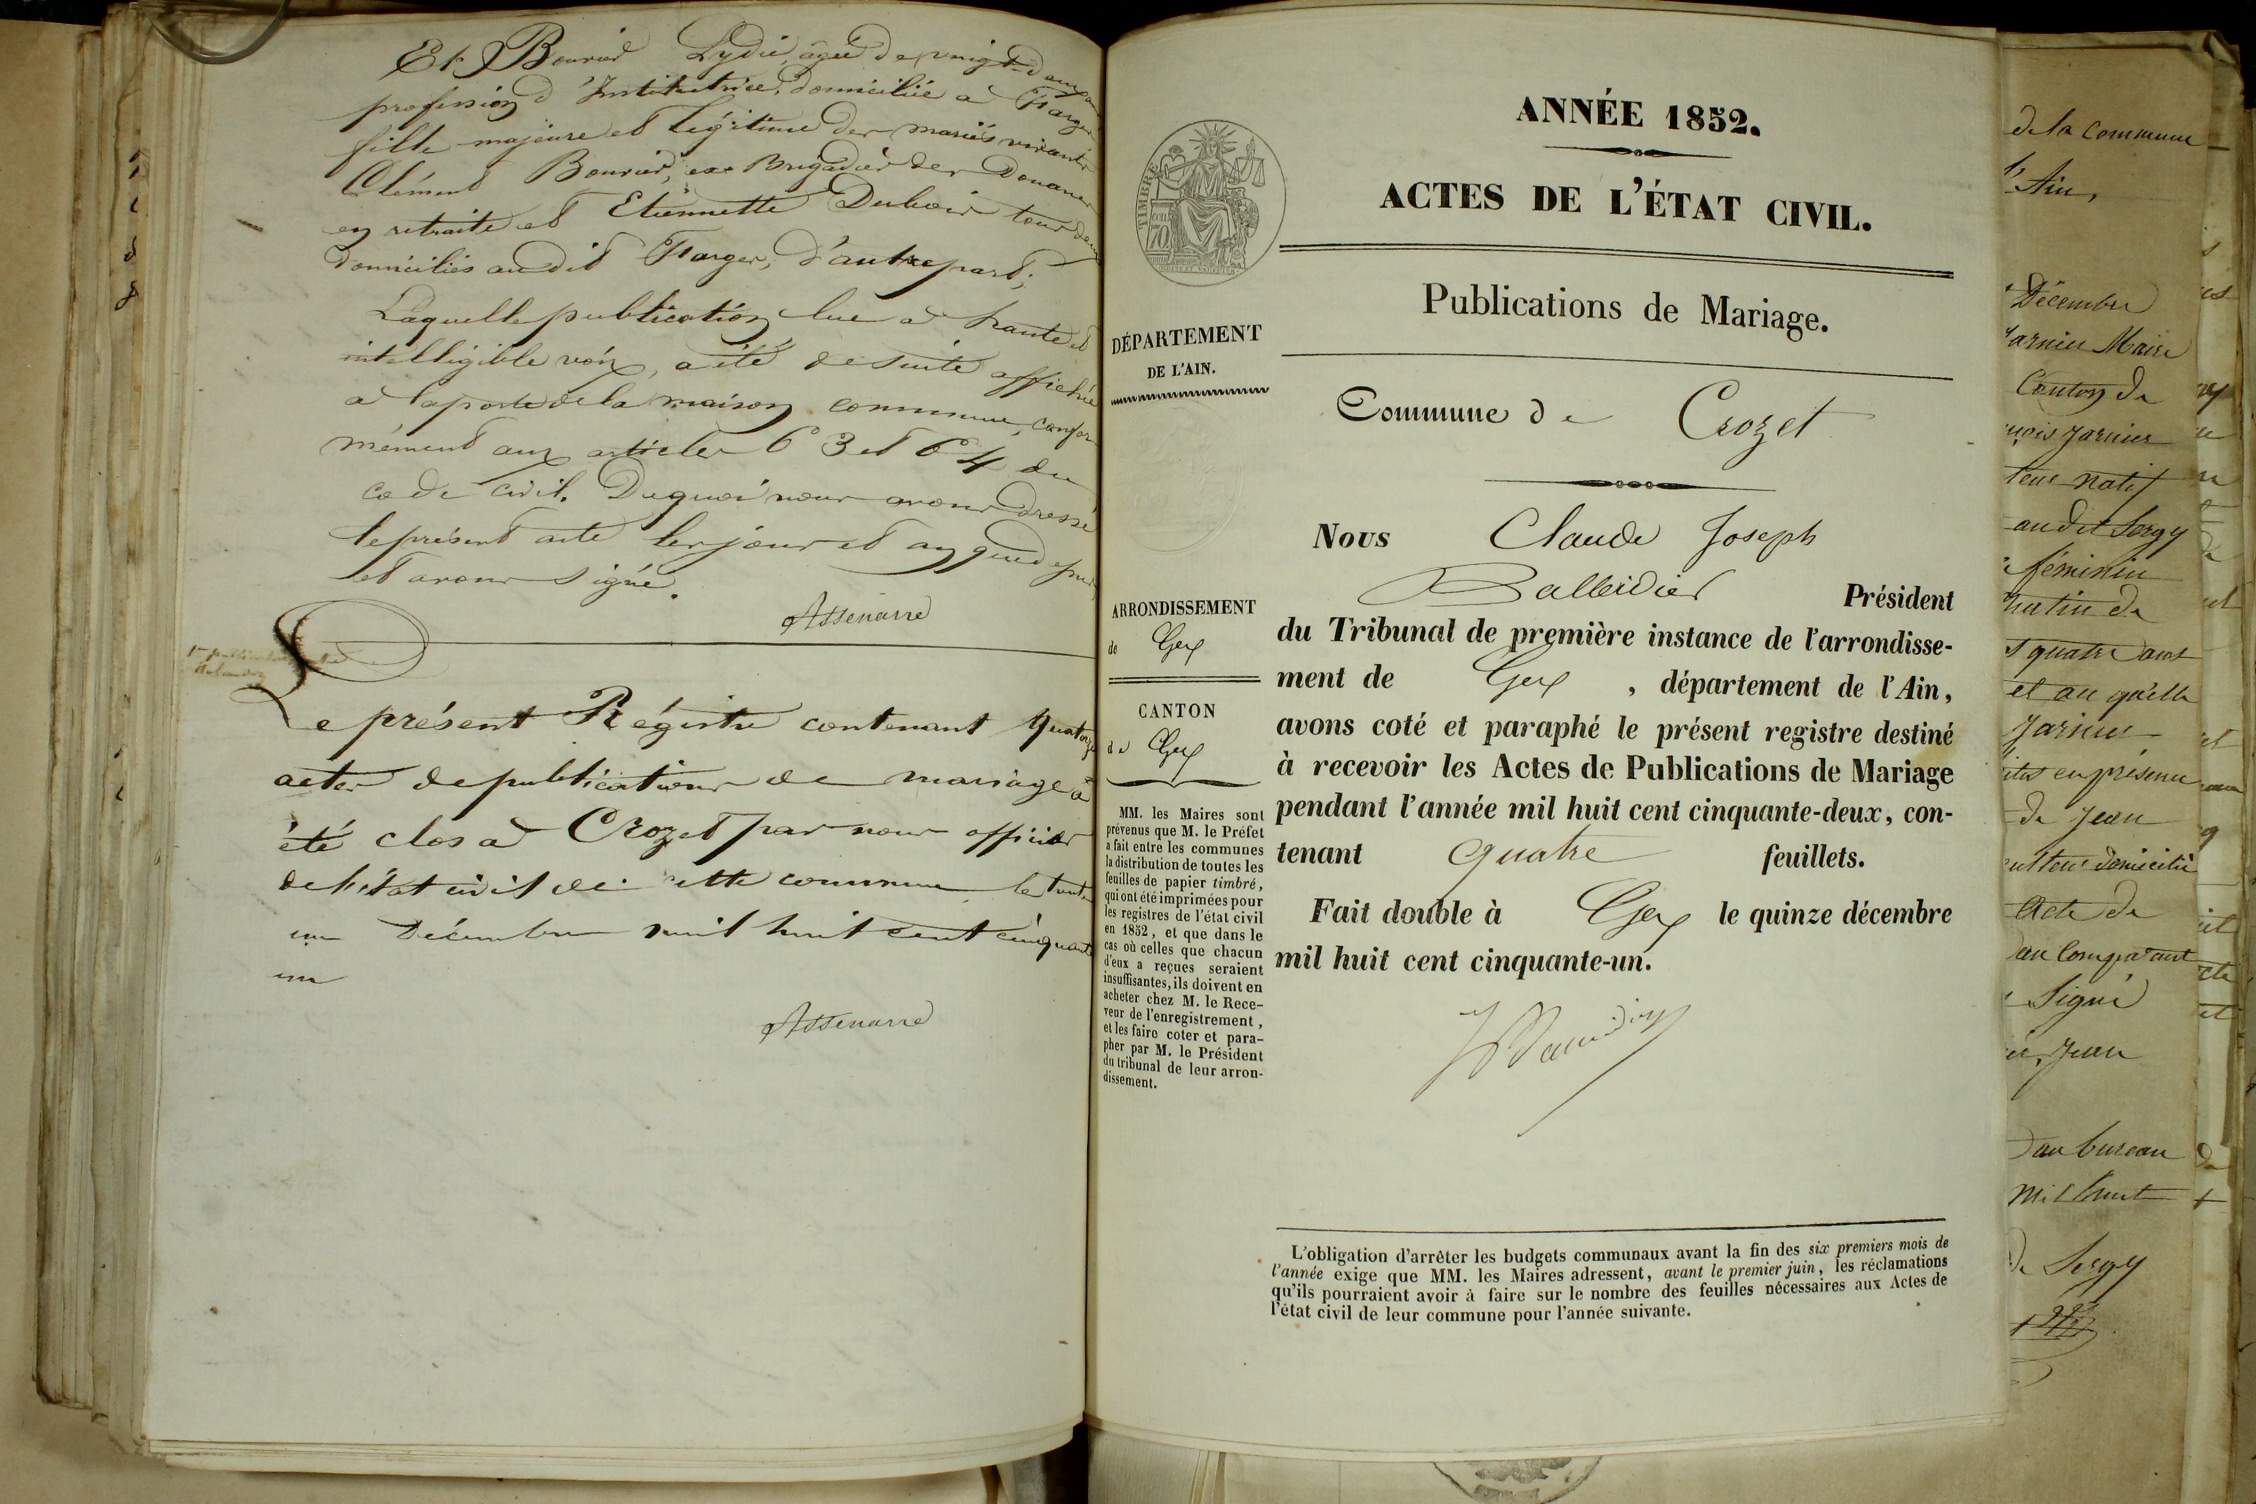 Et Bouvier Lydie, âgée de vingt-deux ans
profession d'Institutrice, domiciliée à Farges
fille majeure et légitime des mariés vivants
Clément Bouvier, ex Brigadier des Douanes
en retraite et Etiennette Dubois tous deux
domiciliés au dit Farges, d'autre part;
Laquelle publication lue à haute et
intelligible voix, a été de suite affichée
à la porte de la maison commune, confor
mément aux articles 63 et 64 du
code civil. De quoi nous avons dressé
le présent acte les jour et an que dessus
et avons signé.
1re publication
Le présent Régistre contenant quatorze
actes de publications de mariage a
été clos à Crozet par nous officier
de l'état civil de cette commune le trente
un Décembre mil huit cent cinquante
un
ANNÉE 1852.
ACTES DE L'ÉTAT CIVIL.
TIMBRE
70
Publications de Mariage.
DÉPARTEMENT
DE L'AIN.
Commune de Crozet
ARRONDISSEMENT
de Gex
CANTON
de Gex
MM. les Maires sont
prévenus que M. le Préfet
a fait entre les communes
la distribution de toutes les
feuilles de papier timbré,
qui ont été imprimées pour
les registres de l'état civil
en 1852, et que dans le
cas où celles que chacun
d'eux a reçues seraient
insuffisantes, ils doivent en
acheter chez M. le Rece-
veur de l'enregistrement,
et les faire coter et para-
pher par M. le Président
du tribunal de leur arron-
dissement.
Nous Claude Joseph
Balleidier Président
du Tribunal de première instance de l'arrondisse-
ment de Gex, département de l'Ain,
avons coté et paraphé le présent registre destiné
à recevoir les Actes de Publications de Mariage
pendant l'année mil huit cent cinquante-deux, con-
tenant quatre feuillets.
Fait double à Gex le quinze décembre
mil huit cent cinquante-un.
L'obligation d'arrêter les budgets communaux avant la fin des six premiers mois de
l'année exige que MM. les Maires adressent, avant le premier juin, les réclamations
qu'ils pourraient avoir à faire sur le nombre des feuilles nécessaires aux Actes de
l'état civil de leur commune pour l'année suivante.
de la Commune
Ain,
Décembre
Maire
Canton de
natif
au dit Sergy
féminin
matin de
quatre
et au qu'elle
en présence
de Jean
domicilié
Acte de
Signé
Jean
au bureau
mil huit
de Sergy